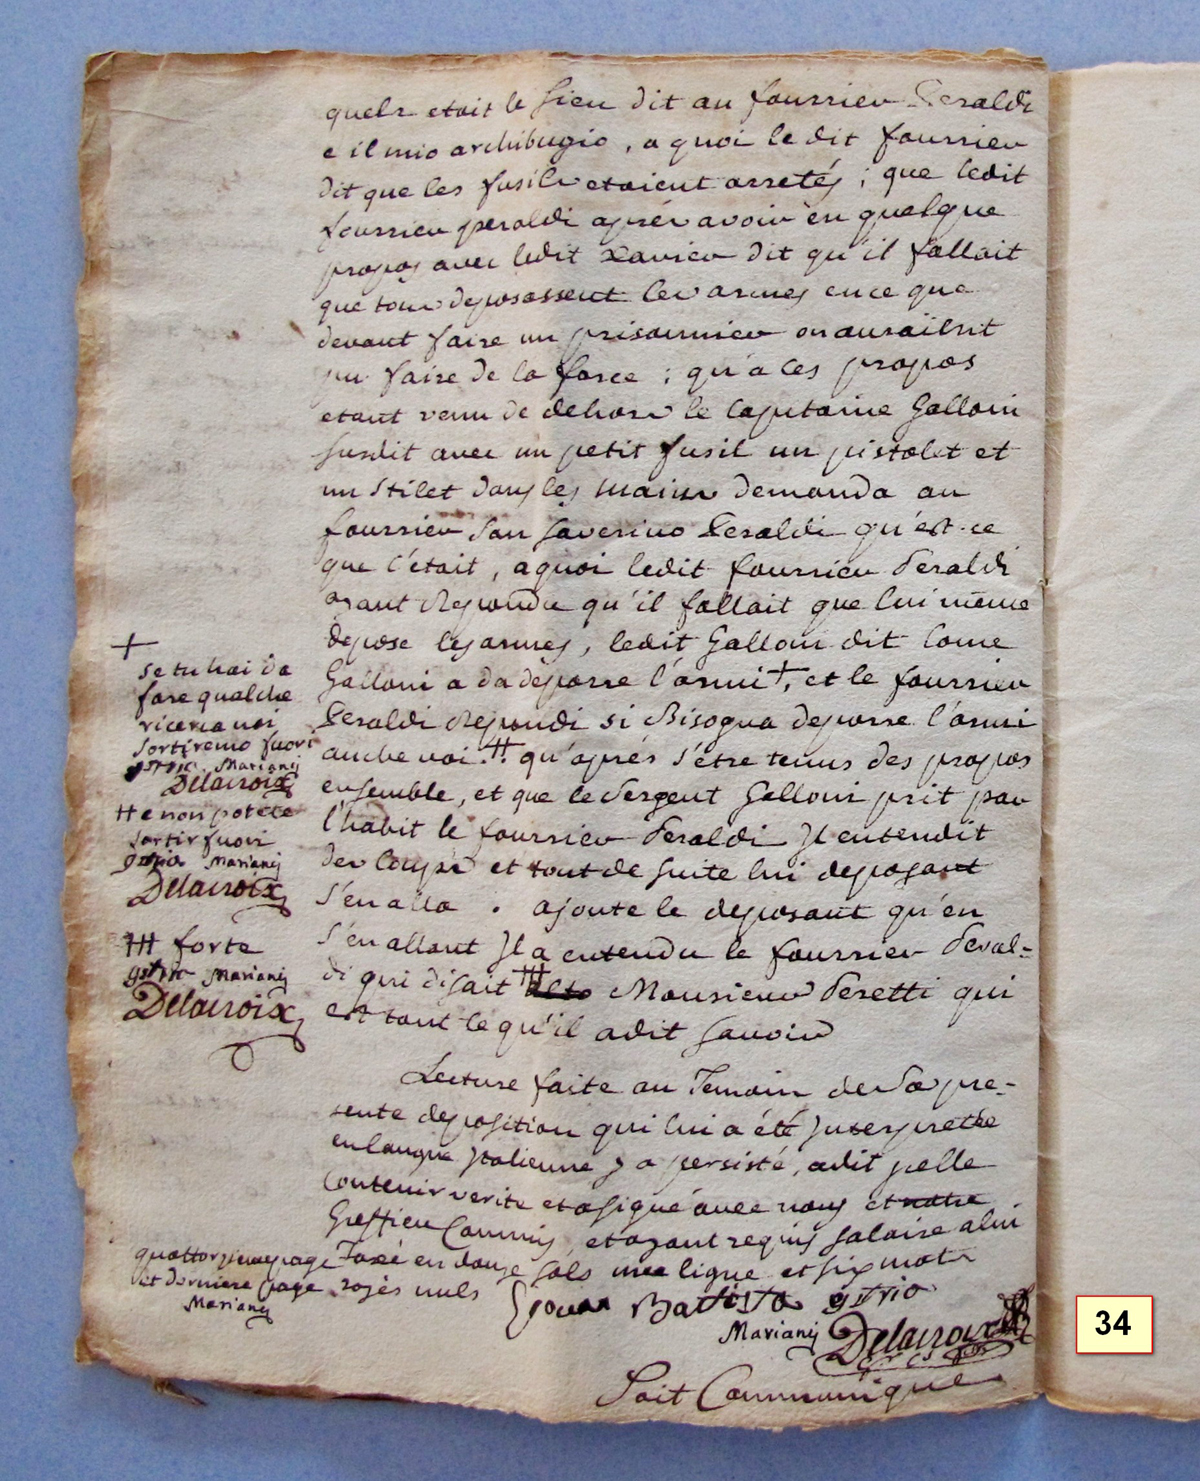 quels etait le sien dit au fourrier Peraldi
e il mio archibugio, a quoi le dit fourrier
dit que les fusils etaient arretés ; que ledit
fourrier peraldi aprés avoir eu quelque
propos avec ledit Xavier dit qu'il fallait
que tous deposassent les armes en ce que
devant faire un prisonnier on aurait
pu faire de la force ; qu'a ces propos
etant venu de dehors le Capitaine Galloni
susdit avec un petit fusil un pistolet et
un Stilet dans les mains demanda au
fourrier San Saverino Peraldi qu'est-ce
que c'était, a quoi ledit fourrier Peraldi
ayant repondu qu'il fallait que lui même
depose les armes, ledit Galloni dit Come
Galloni a da deporre l'armi +, et le fourrier
Peraldi repondi si Bisogna deporre l'armi
anche voi ++ qu'aprés s'être tenus des propos
ensemble, et que le Sergent Galloni prit par
l'habit le fourrier Peraldi Il entendit
des Coups et tout de suite lui deposant
s'en alla . ajoute le deposant qu'en
s'en allant Il a entendu le fourrier Peral=
di qui disait +++ Monsieur Peretti qui
est tout ce qu'il a dit savoir
+
se tu hai da
fare qualche
ricerca noi
sortiremo fuori
gstrio Marianj
Delacroix
++ e non potete
sortir fuori
gstrio Marianj
Delacroix
+++ forte
gstrio Marianj
Delacroix
Lecture faite au Temoin de Sa pre=
sente deposition qui lui a été Interpretée
en langue Italienne y a persisté, a dit Icelle
Contenir verité et a signé avec nous et notre
Greffier Commis, et ayant requis salaire a lui
Taxé en douze sols une ligne et six mots
rayés nuls
quattorzieme page
et derniere page
Marianj
Giovan Battista gstrio
Marianj Delacroix
Soit Communiqué
34